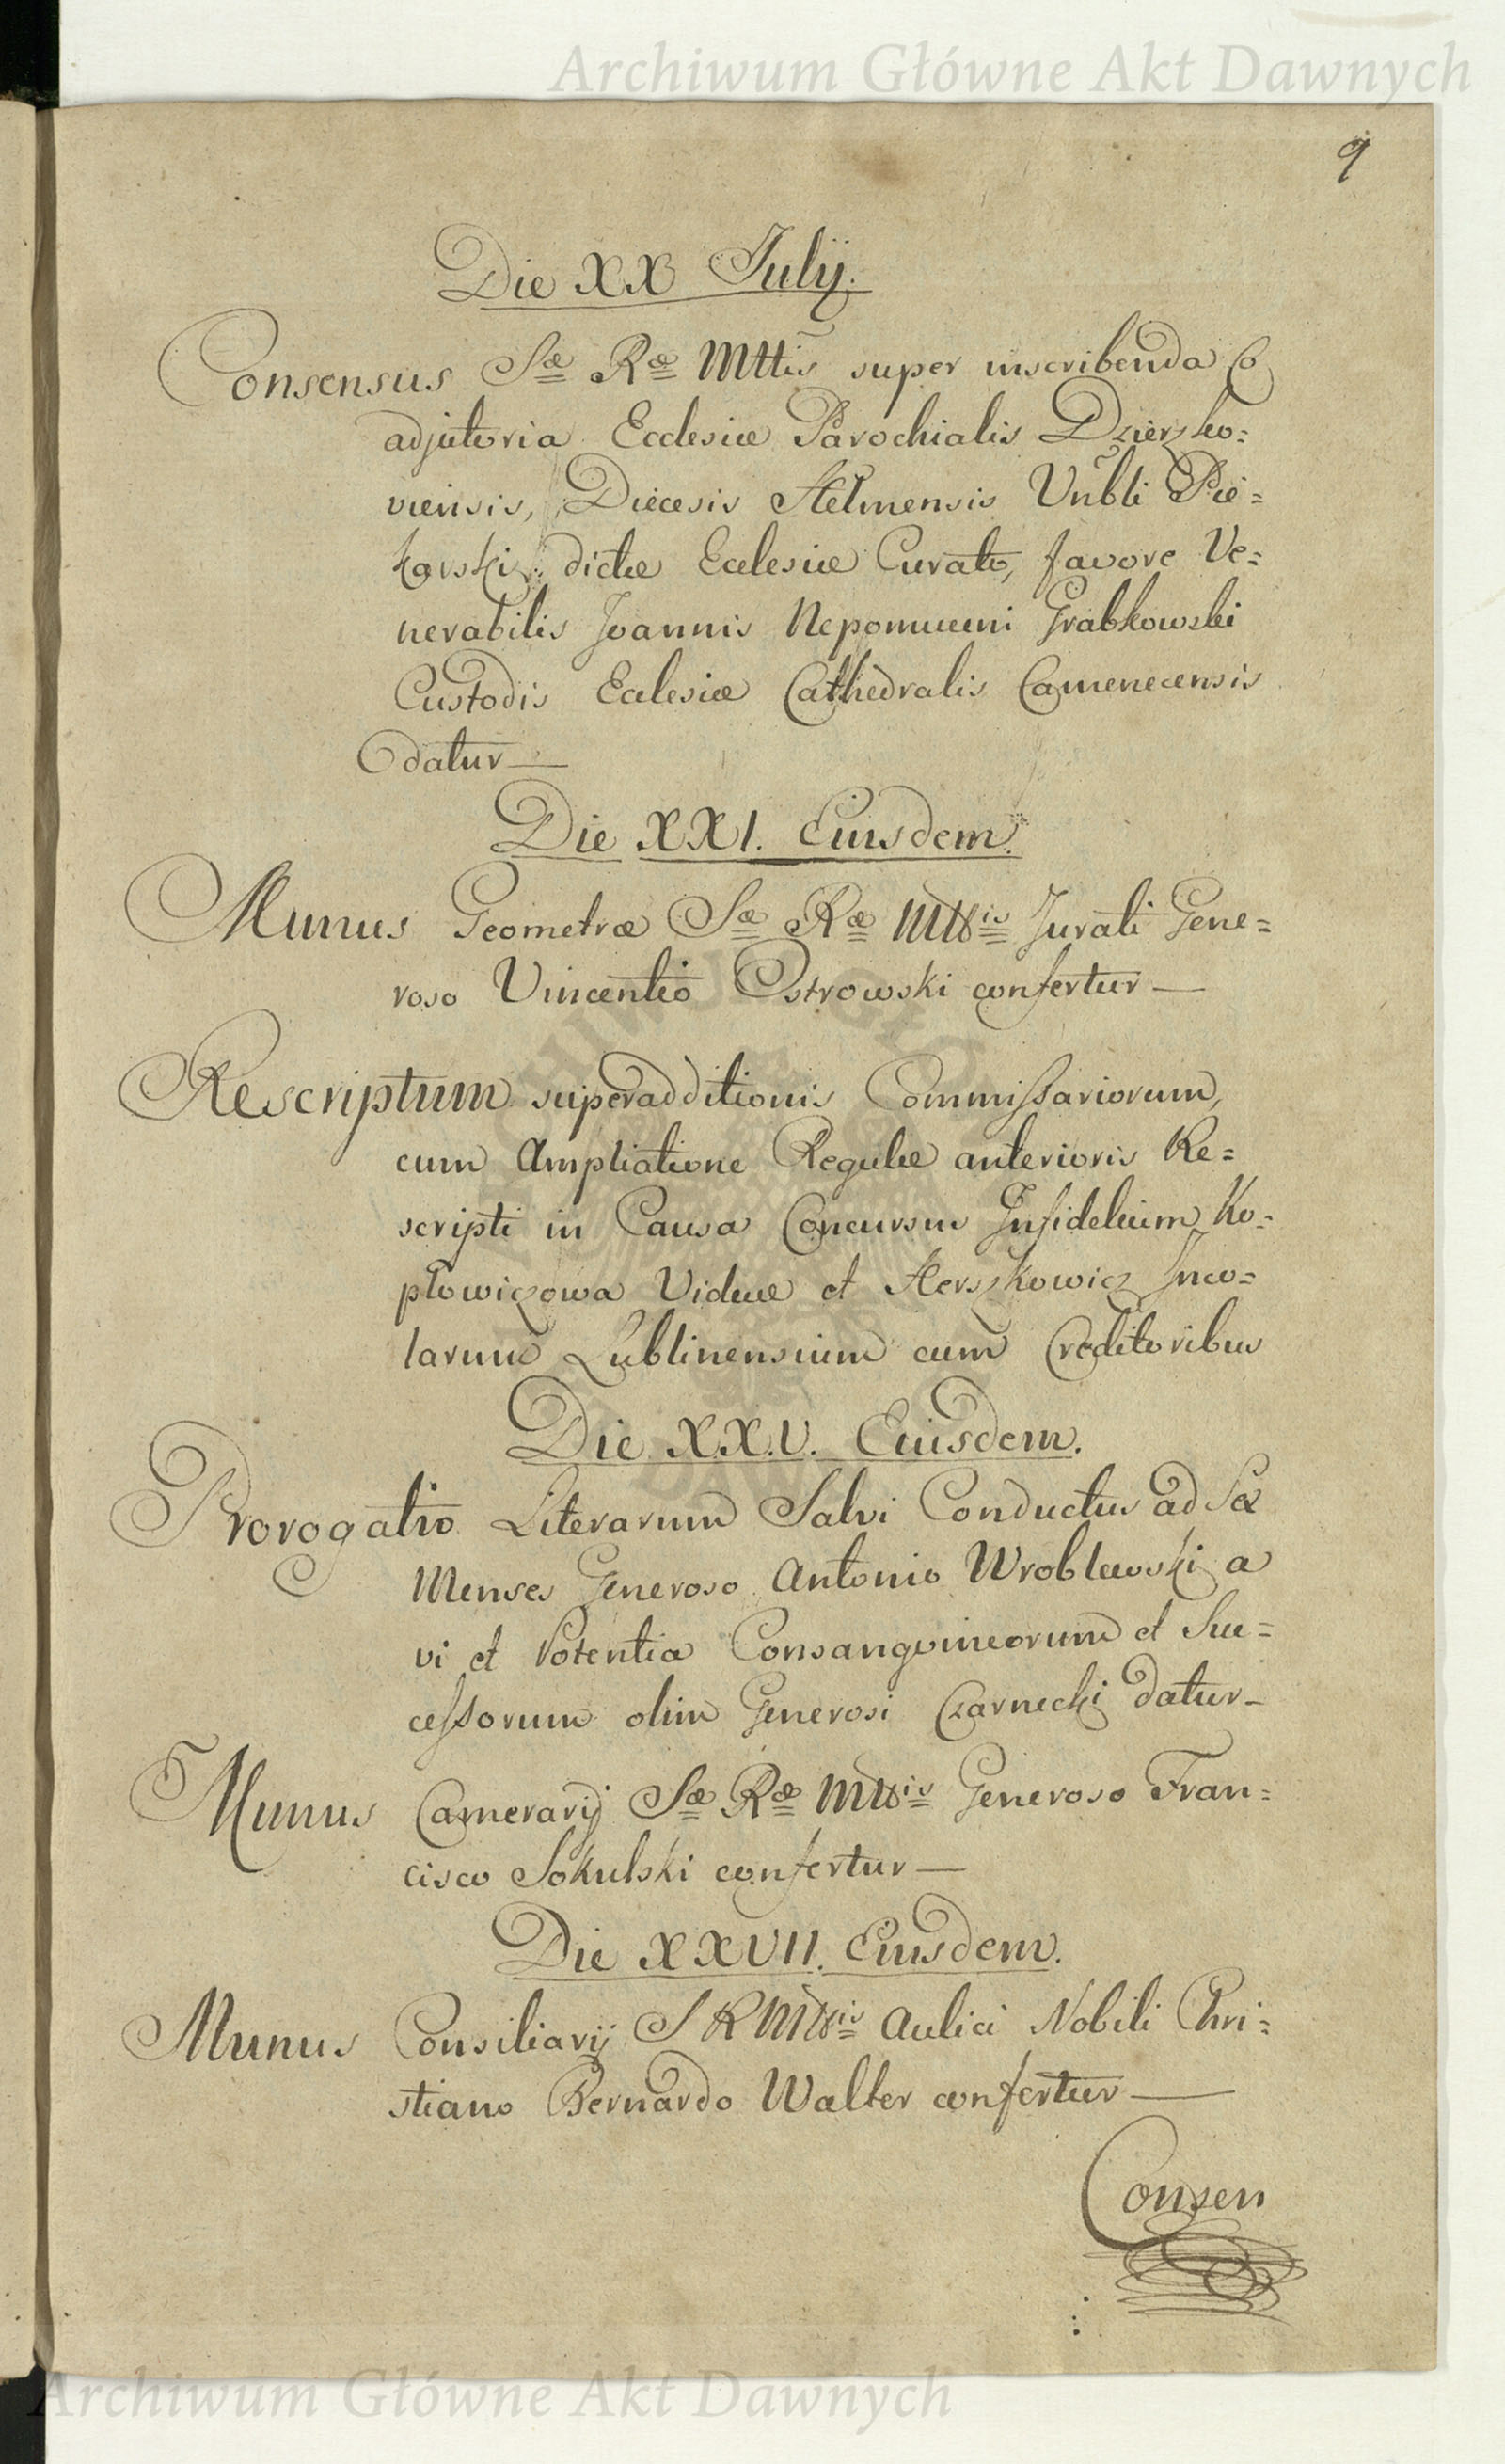 Archiwum Główne Akt Dawnych
9
Die XX Julij.
Consensus Sæ Ræ Mttis super inscribenda Co
adjutoria Ecclesiæ Parochialis Dzierzko=
viensis, Diecesis Helmensis Vnbli Pie=
karski dictæ Ecclesiæ Curato, favore Ve=
nerabilis Joannis Nepomuceni Grabkowski
Custodis Ecclesiæ Cathedralis Camenecensis
datur—
Die XXI. Eiusdem.
Munus Geometræ Sæ Ræ Mttis Jurati Gene=
roso Vincentio Ostrowski confertur—
Rescriptum superadditionis Commissariorum,
cum Ampliatione Regulæ anterioris Re=
scripti in Causa Concursus Infidelium Ko=
plowiczowa Viduæ et Herszkowicz Inco=
larum Lublinensium cum Creditoribus
Die XXV. Eiusdem.
Prorogatio Literarum Salvi Conductus ad Sex
Menses Generoso Antonio Wroblewski a
vi et Potentia Consangvineorum et Suc=
cessorum olim Generosi Czarnecki datur—
Munus Camerarij Sæ Ræ Mttis Generoso Fran=
cisco Sokulski confertur—
Die XXVII. Eiusdem.
Munus Consiliarij S R Mttis Aulici Nobili Chri=
stiano Bernardo Walter confertur—
Consen
Archiwum Główne Akt Dawnych